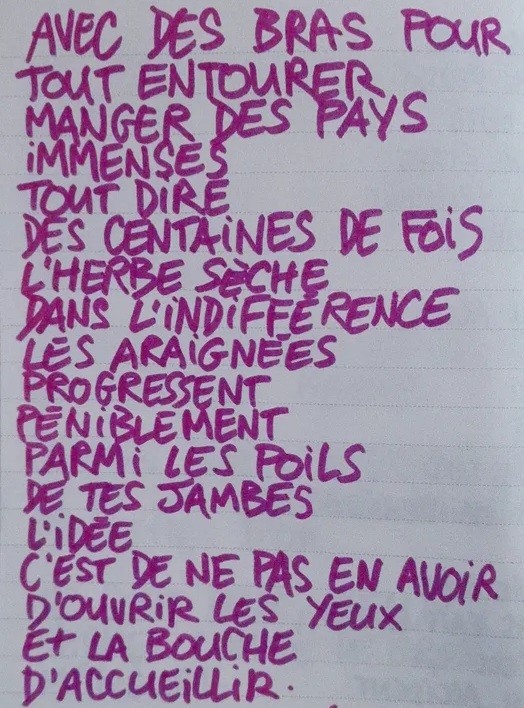 AVEC DES BRAS POUR
TOUT ENTOURER
MANGER DES PAYS
IMMENSES
TOUT DIRE
DES CENTAINES DE FOIS
L'HERBE SÈCHE
DANS L'INDIFFÉRENCE
LES ARAIGNÉES
PROGRESSENT
PÉNIBLEMENT
PARMI LES POILS
DE TES JAMBES
L'IDÉE
C'EST DE NE PAS EN AVOIR
D'OUVRIR LES YEUX
ET LA BOUCHE
D'ACCUEILLIR.